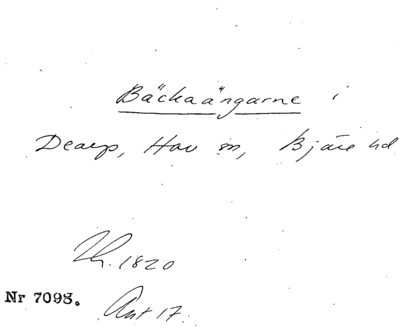 Bäckaängarne i
Dearp, Hov sn, Bjäre hd
Lh. 1820
Nr 7098.
Ant 17.